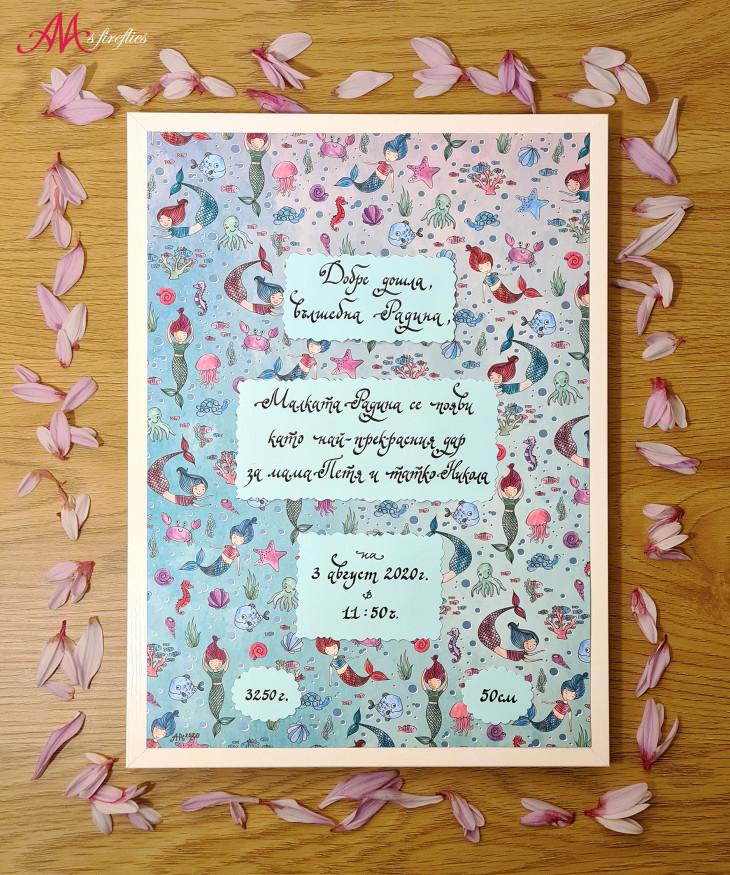 AM's fireflies
Добре дошла,
вълшебна Радина,
Малката Радина се появи
като най-прекрасния дар
за мама Петя и татко Никола
на
3 август 2020г.
в
11:50ч.
3250г.
50см